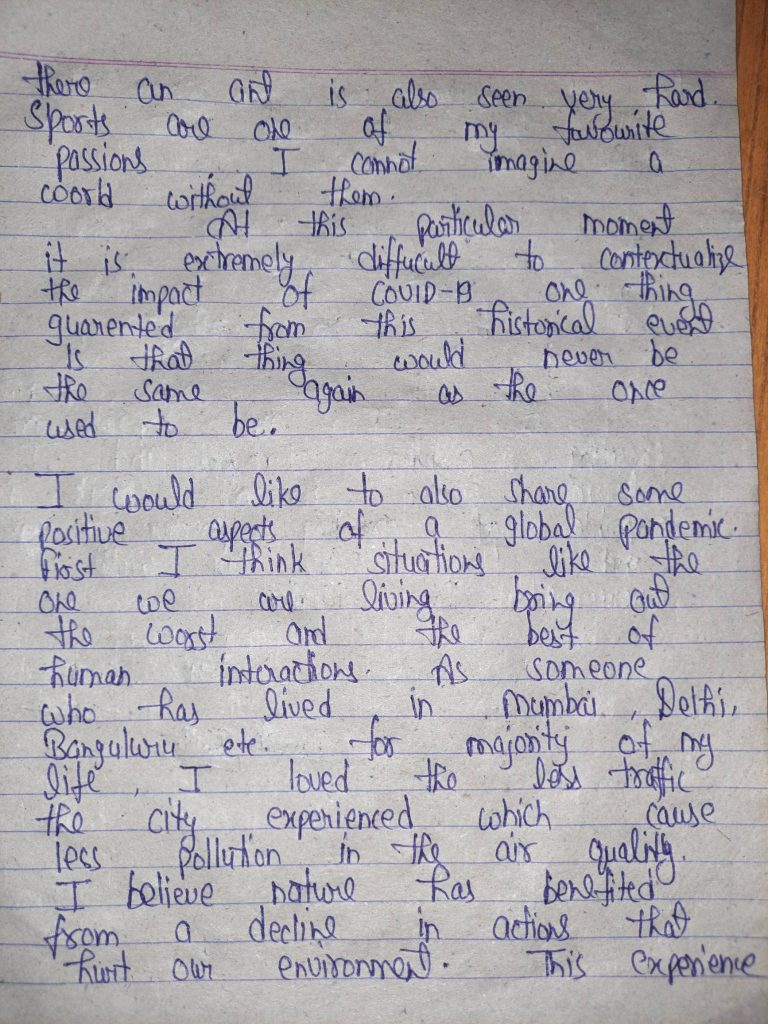 there an and is also seen very hard.
Sports are one of my favourite
passions. I cannot imagine a
world without them.
At this particular moment
it is extremely diffucult to contextualize
the impact of COVID-19 one thing
guarented from this historical event
is that thing would never be
the same again as the once
used to be.
I would like to also share some
positive aspects of a global pandemic.
First I think situations like the
one we are living bring out
the worst and the best of
human interactions. As someone
who has lived in Mumbai, Delhi,
Banguluru etc. for majority of my
life, I loved the less traffic
the city experienced which cause
less pollution in the air quality.
I believe nature has benefited
from a decline in actions that
hurt our environment. This experience